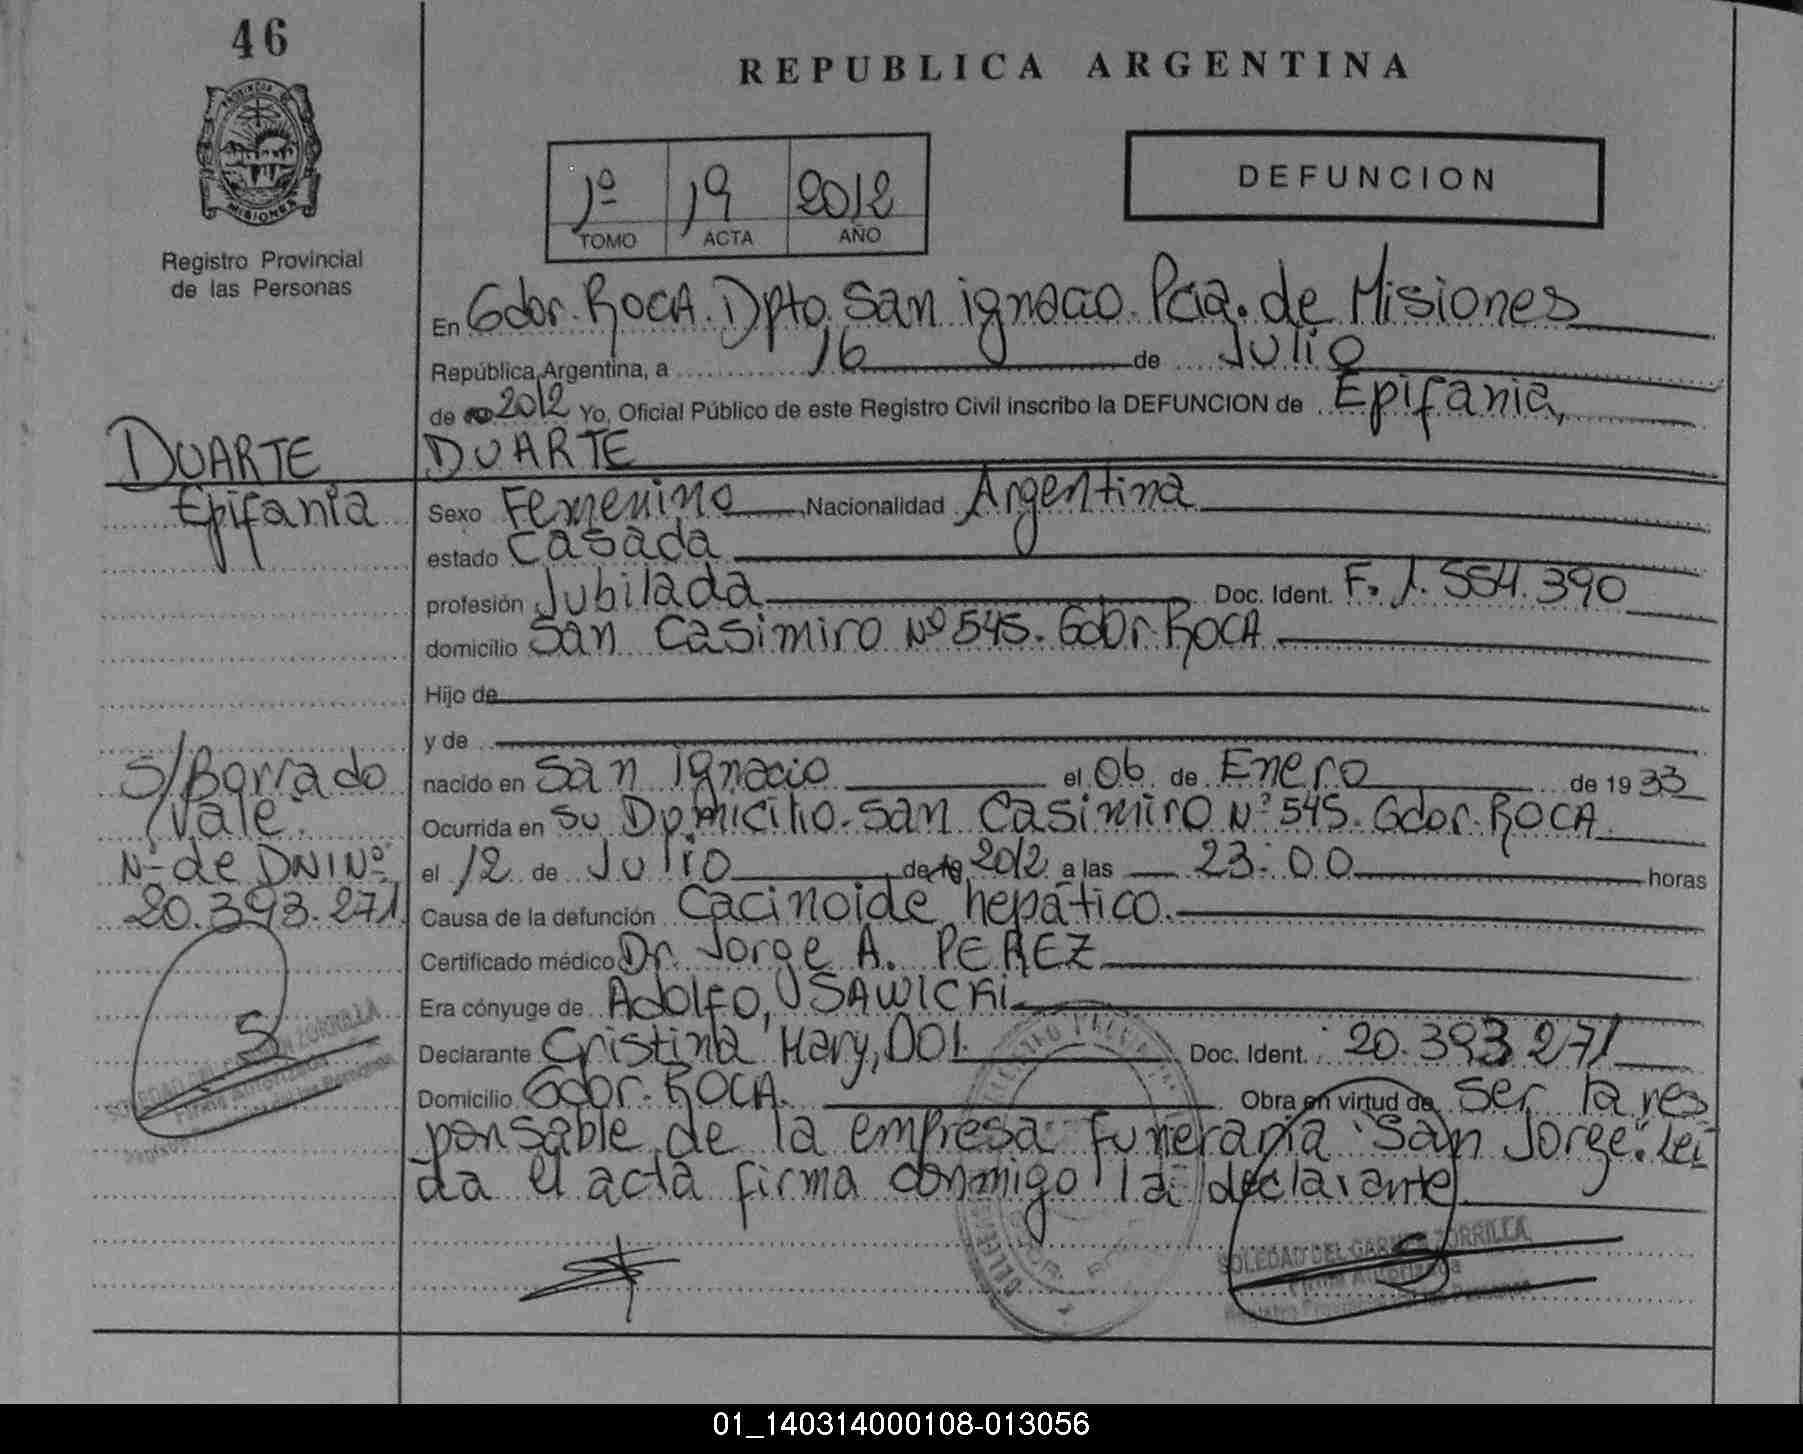 46
REPUBLICA ARGENTINA
PROVINCIA DE
MISIONES
Registro Provincial
de las Personas
1º 19 2012
TOMO ACTA AÑO
DEFUNCION
En Gdor. ROCA. Dpto. San ignacio. Pcia. de Misiones
República Argentina, a 16 de Julio
de 2012 Yo, Oficial Público de este Registro Civil inscribo la DEFUNCION de Epifania,
DUARTE
DUARTE
Epifania
Sexo Femenino Nacionalidad Argentina
estado Casada
profesión Jubilada Doc. Ident. F. 1.554.390
domicilio San Casimiro Nº 545. Gdor. ROCA
Hijo de
y de
nacido en San Ignacio el 06 de Enero de 1933
Ocurrida en su Domicilio. San Casimiro Nº 545. Gdor. ROCA
el 12 de Julio de 19 2012 a las 23:00 horas
Causa de la defunción Cacinoide hepático.
Certificado médico Dr. Jorge A. PEREZ
Era cónyuge de Adolfo, USAWICKI
Declarante Cristina Mary, DOI. Doc. Ident. 20.393.271
Domicilio Gdor. ROCA. Obra en virtud de ser la res
ponsable de la empresa funeraria "San Jorge". Lei
da el acta firma conmigo la declarante
S/Borrado
Vale:
Nº de DNI Nº
20.393.271
SOLEDAD DEL CARMEN ZORRILLA
Firma Autorizada
SOLEDAD DEL CARMEN ZORRILLA
Firma Autorizada
Registro Provincial de las Personas
01_140314000108-013056